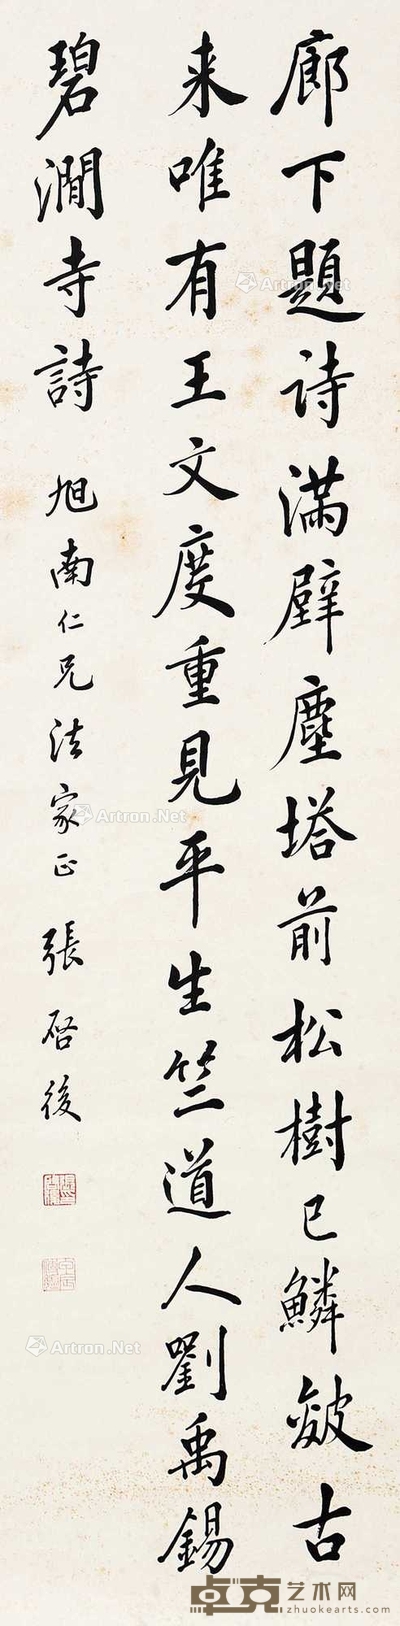 廊下題詩滿壁塵塔前松樹已鱗皴古
来唯有王文度重見平生竺道人劉禹錫
碧澗寺詩 旭南仁兄法家正 張啓後
Artron.Net
Artron.Net
Artron.Net
卓克艺术网
zhuokearts.com